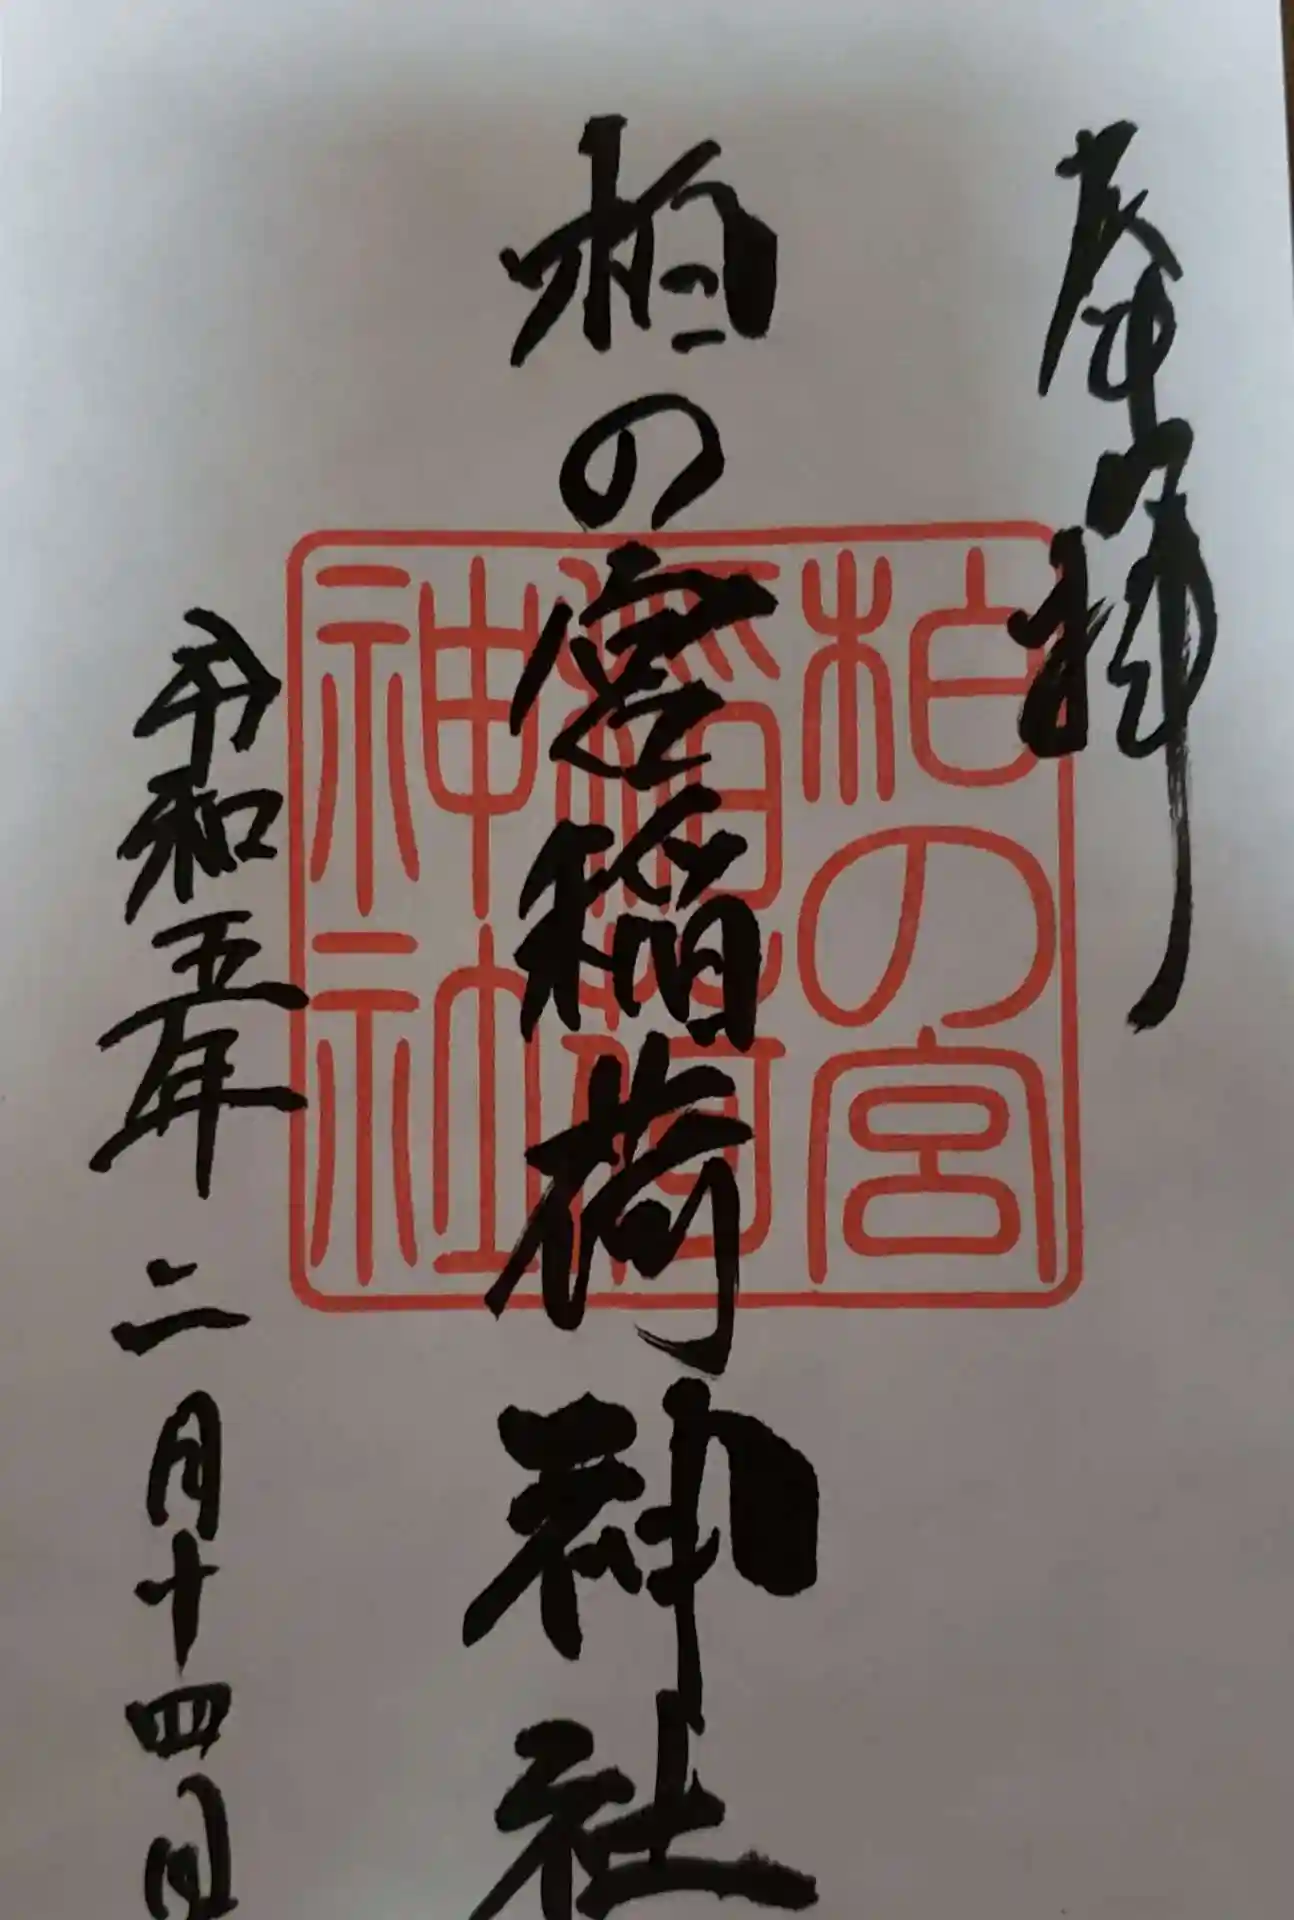 奉拝
柏の宮稲荷神社
令和五年二月十四日
柏の宮
稲荷
神社